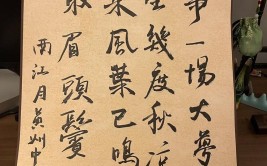 事一場大夢
生幾度秋涼
來風葉已鳴
取眉頭鬢
西江月黃州中